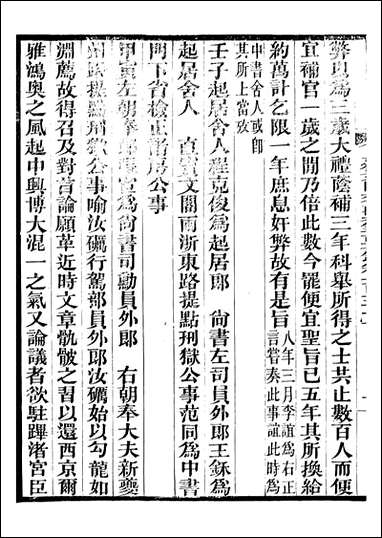 弊以為三歲大禮蔭補三年科舉所得之士共止數百人而便
宜補官一歲之閒乃倍此數今罷便宜聖旨已五年其所換給
約萬計乞限一年庶息奸弊故有是旨八年三月李誼為右正言嘗奏此事誼此時為
中書舍人或卽其所上當攷
壬子起居舍人程克俊為起居郎　尚書左司員外郎王鉌為
起居舍人　直寶文閣兩浙東路提點刑獄公事范同為中書
門下省檢正諸房公事
甲寅左朝奉郎為尚書司勳員外郎　右朝奉大夫新夔
州路提點刑獄公事喻汝礪行駕部員外郎汝礪始以勾龍如
淵薦故得召及對首論願革近時文章骫骳之習以還西京爾
雅鴻奥之風起中興博大混一之氣又論議者欲駐蹕渚宮臣